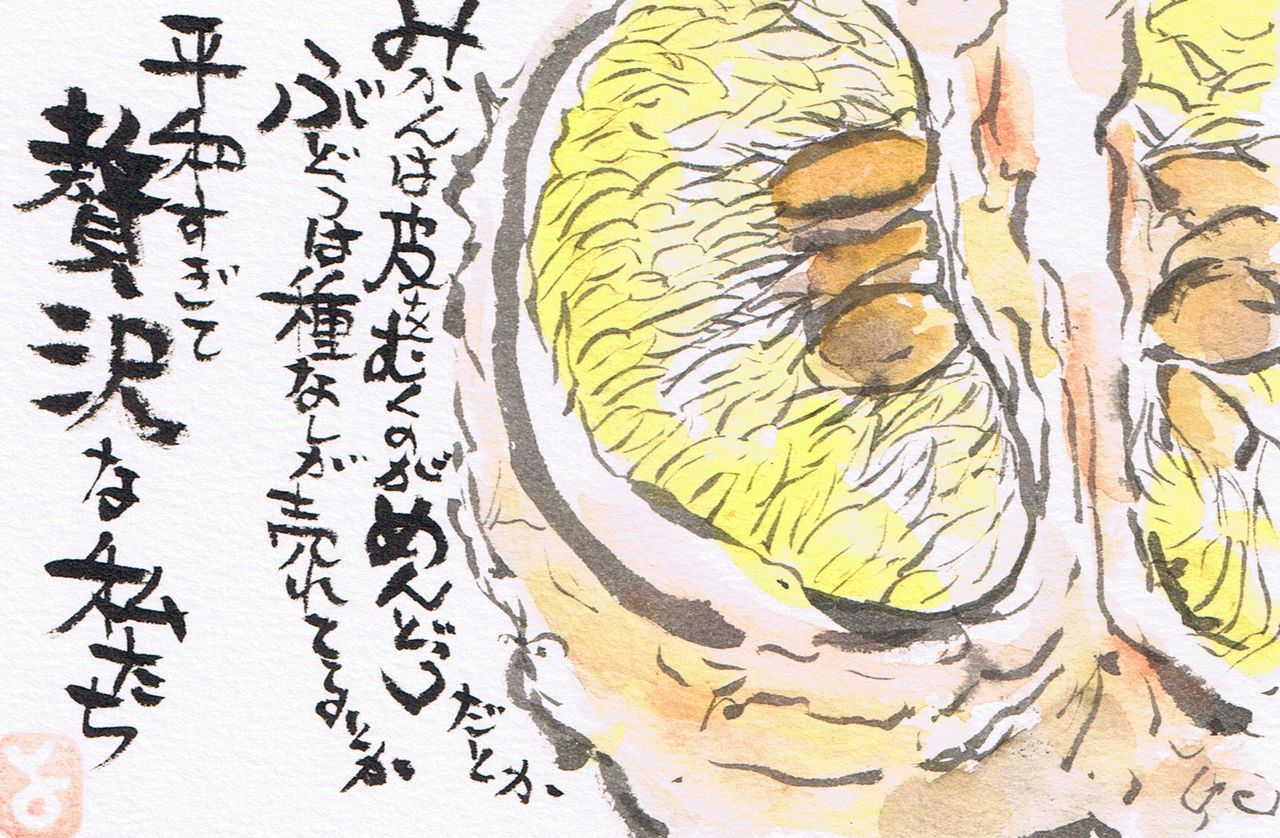 みかんは皮をむくのがめんどうだとか
ぶどうは種なしが売れてるとか
平和すぎて
贅沢な私たち
よ